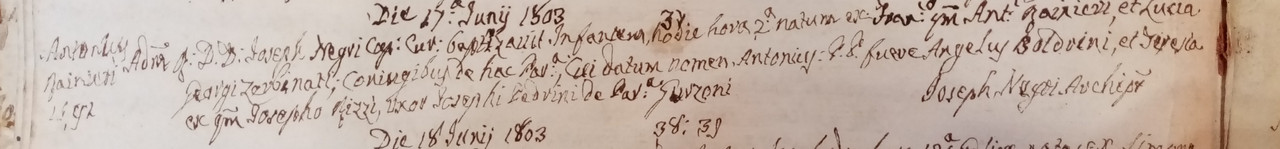 Die 17.ª Junij 1803
38
Antonius Adm. R. D. D. Joseph Negri Cap: Cur: baptizavit Infantem, hodie hora 2.ª natum ex Fran: qm Ant: Rainieri, et Lucia
Rainieri Georgi Zorbinati, Coniugibus de hac Par.ª, Cui datum nomen Antonius. P. P. fuere Angelus Boldrini, et Teresia
ex qm Josepho Rizzi, uxor Josephi Pedrini de Par.ª Gurzoni
Joseph Negri Archipr
Die 18 Junij 1803
38: 39